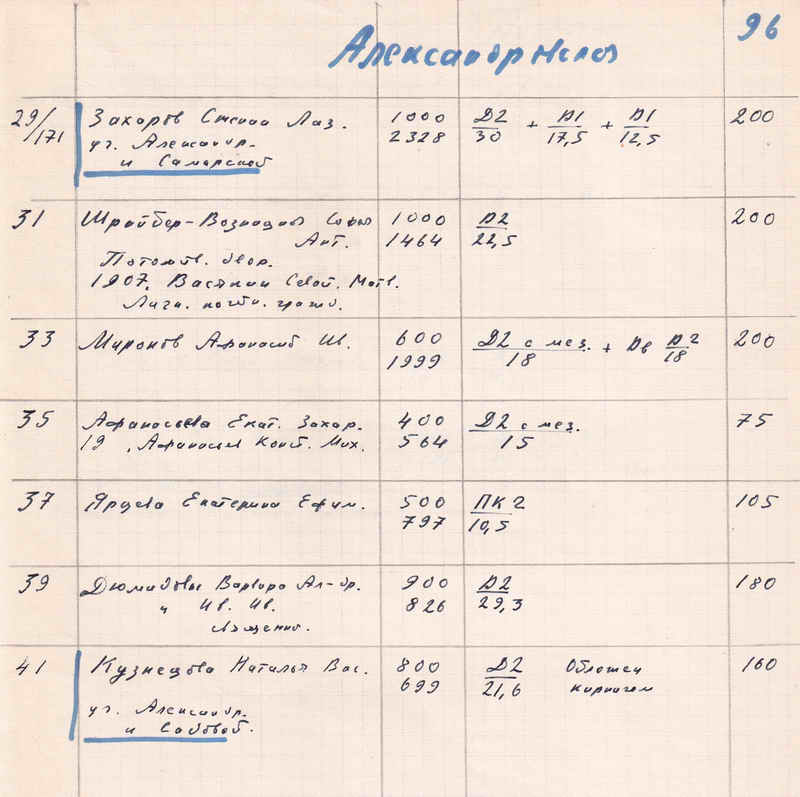 96
Александровская
29/171 Захаров Степан Лаз. 1000 Д2/30 + Д1/17,5 + Д1/12,5 200
уг. Александр. 2328
и Самарской
31 Шрейбер-Возницын Софья 1000 Д2/22,5 200
Ант. 1464
Потомств. двор.
1907, Васянин Севаст. Матв.
Личн. почтн. гражд.
33 Миронов Афанасий Ив. 600 Д2 с мез./18 + Дв Д2/18 200
1999
35 Афанасьева Екат. Захар. 400 Д2 с мез./15 75
19 , Афанасьев Конст. Мих. 564
37 Екатерина Ефим. 500 ПК2/10,5 105
797
39 Варвара Ал-др. 900 Д2/29,3 180
" Ив. Ив. 826
41 Кузнецова Наталья Вас. 800 Д2/21,6 Обложен 160
699 кирпичем
уг. Александр.
и Садовой.